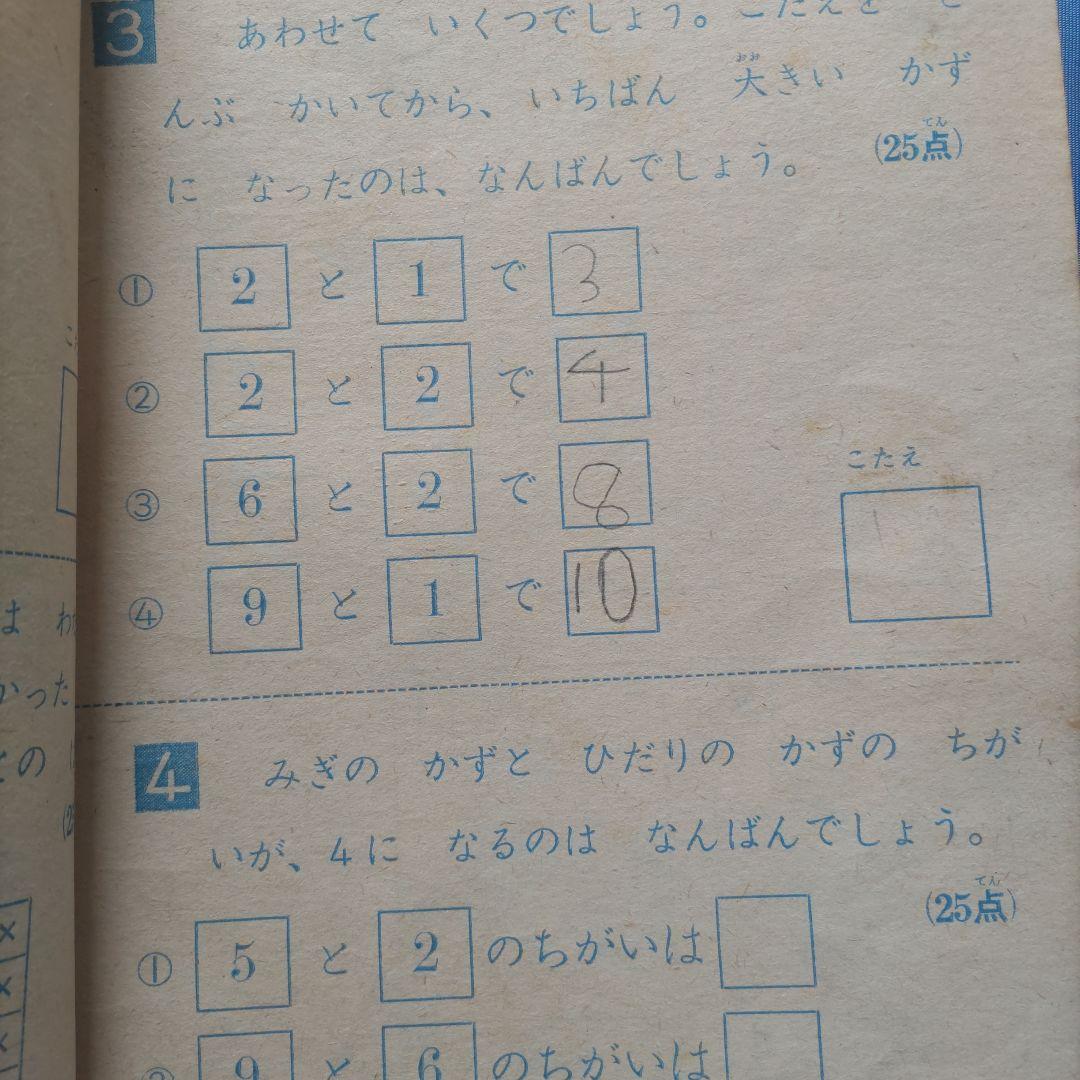 3 あわせて いくつでしょう。こたえを ぜ
んぶ かいてから、いちばん 大きい かず
おお
に なったのは、なんばんでしょう。 (25点)
てん
① 2 と 1 で 3
② 2 と 2 で 4
③ 6 と 2 で 8
④ 9 と 1 で 10
こたえ
4 みぎの かずと ひだりの かずの ちが
いが、4に なるのは なんばんでしょう。
(25点)
てん
① 5 と 2 のちがいは
② 9 と 6 のちがいは
は わ
かった
との
×
×